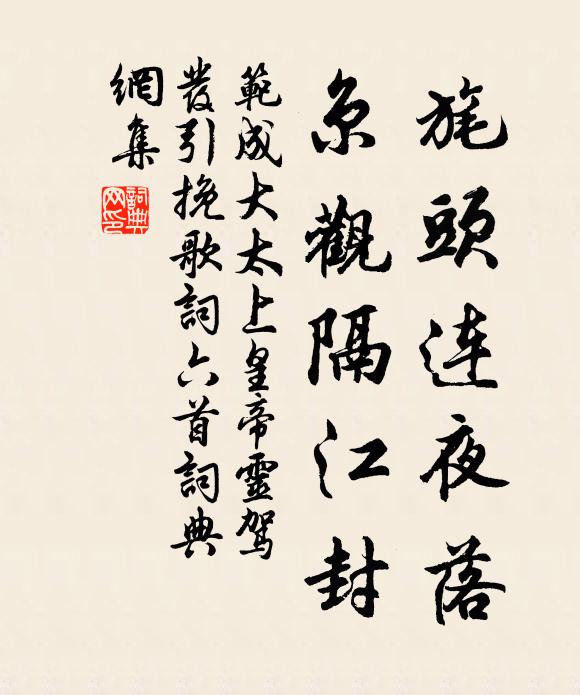 旄頭連夜落
京觀隔江封
範成大太上皇帝靈駕
發引挽歌詞六首詞典
網集
詞典
网印